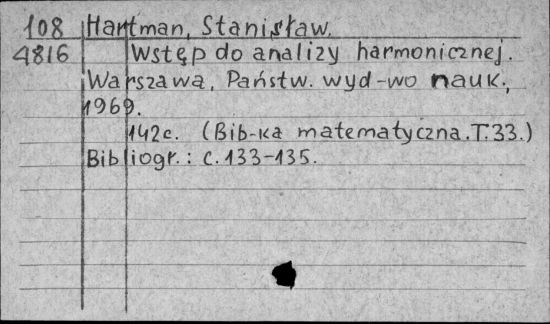 108 Hartman, Stanisław.
4816 Wstęp do analizy harmonicznej.
Warszawa, Państw. wyd-wo nauk.,
1969.
142c. (Bib-ka matematyczna. T.33.)
Bibliogr.: c. 133-135.